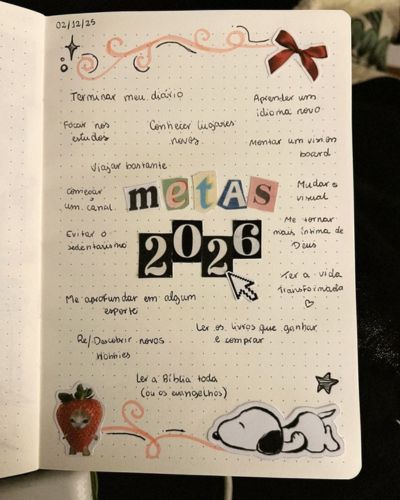 02/12/25
Terminar meu diário
Aprender um
idioma novo
Focar nos
estudos
Conhecer lugares
novos
Montar um vision
board
Viajar bastante
começar
um canal
metas
Mudar o
visual
Evitar o
sedentarismo
2026
Me tornar
mais íntima de
Deus
Ter a vida
transformada
Me aprofundar em algum
esporte
Ler os livros que ganhar
e comprar
Re/Descobrir novos
Hobbies
Ler a Bíblia toda
(ou os evangelhos)